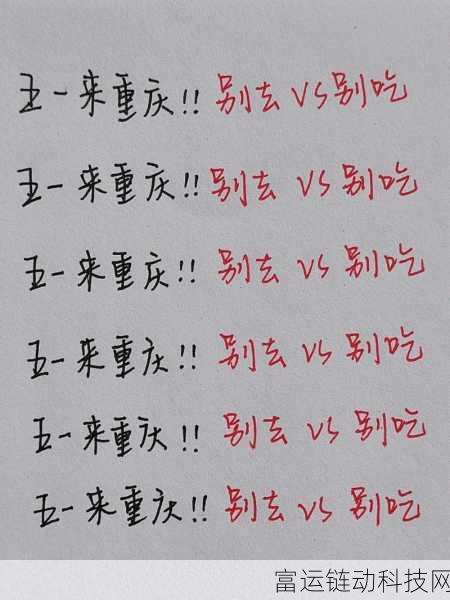 五一来重庆!!别去 VS 别吃
五一来重庆!!别去 VS 别吃
五一来重庆!!别去 VS 别吃
五一来重庆!!别去 VS 别吃
五一来重庆!!别去 VS 别吃
五一来重庆!!别去 VS 别吃
富运链动科技网